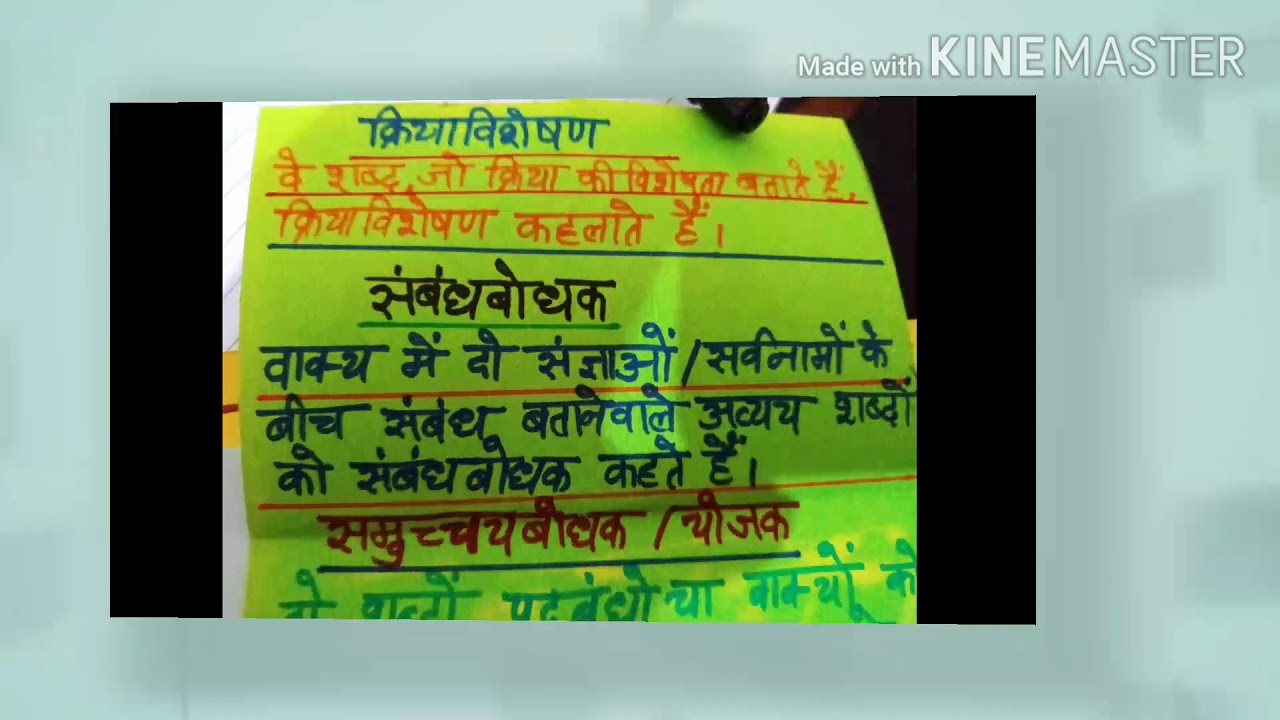 Made with KINEMASTER
क्रियाविशेषण
वे शब्द, जो क्रिया की विशेषता बताते हैं,
क्रियाविशेषण कहलाते हैं।
संबंधबोधक
वाक्य में दो संज्ञाओं/सर्वनामों के
बीच संबंध बतानेवाले अव्यय शब्दों
को संबंधबोधक कहते हैं।
समुच्चयबोधक/योजक
दो शब्दों पदबंधो या वाक्यों को